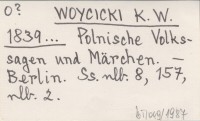 0?
WOYCICKI K. W.
1839... Polnische Volks-
sagen und Märchen. –
Berlin. Ss. nlb. 8, 157,
nlb. 2.